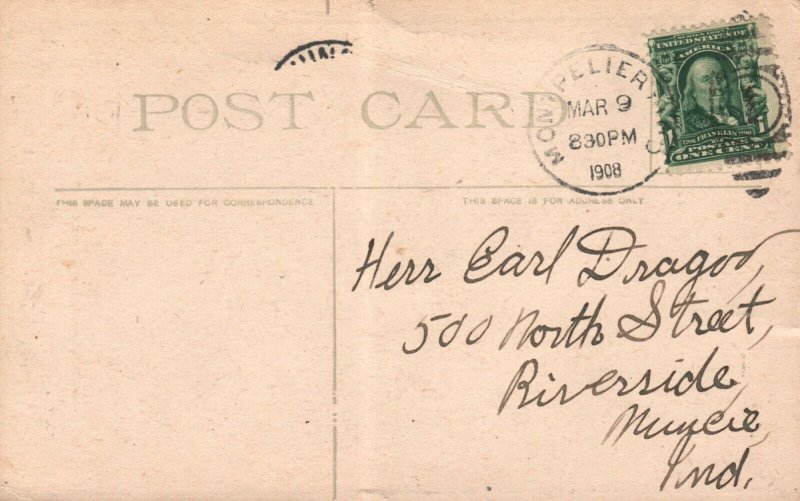 POST CARD
MONTPELIER
MAR 9
830PM
1908
SERIES 1902
UNITED STATES OF
AMERICA
1706 FRANKLIN 1790
POSTAGE
1 ONE CENT 1
THIS SPACE MAY BE USED FOR CORRESPONDENCE
THIS SPACE IS FOR ADDRESS ONLY
Herr Carl Dragoo,
500 North Street,
Riverside,
Muncie,
Ind.